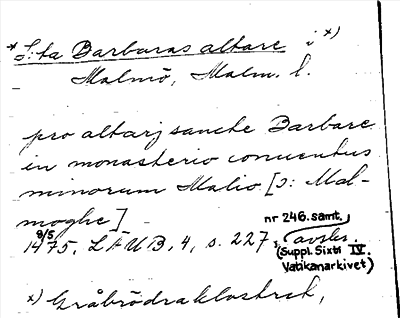 * S:ta Barbaras altare i x)
Malmö, Malm. l.
pro altarj sancte Barbare
in monasterio conuentus
minorum Malio [ɔ: Mal-
moghe]
8/5 1475, LÄUB, 4, s. 227, avskr.
nr 246. samt.
(Suppl. Sixti IV.
Vatikanarkivet)
x) Gråbrödraklostret,